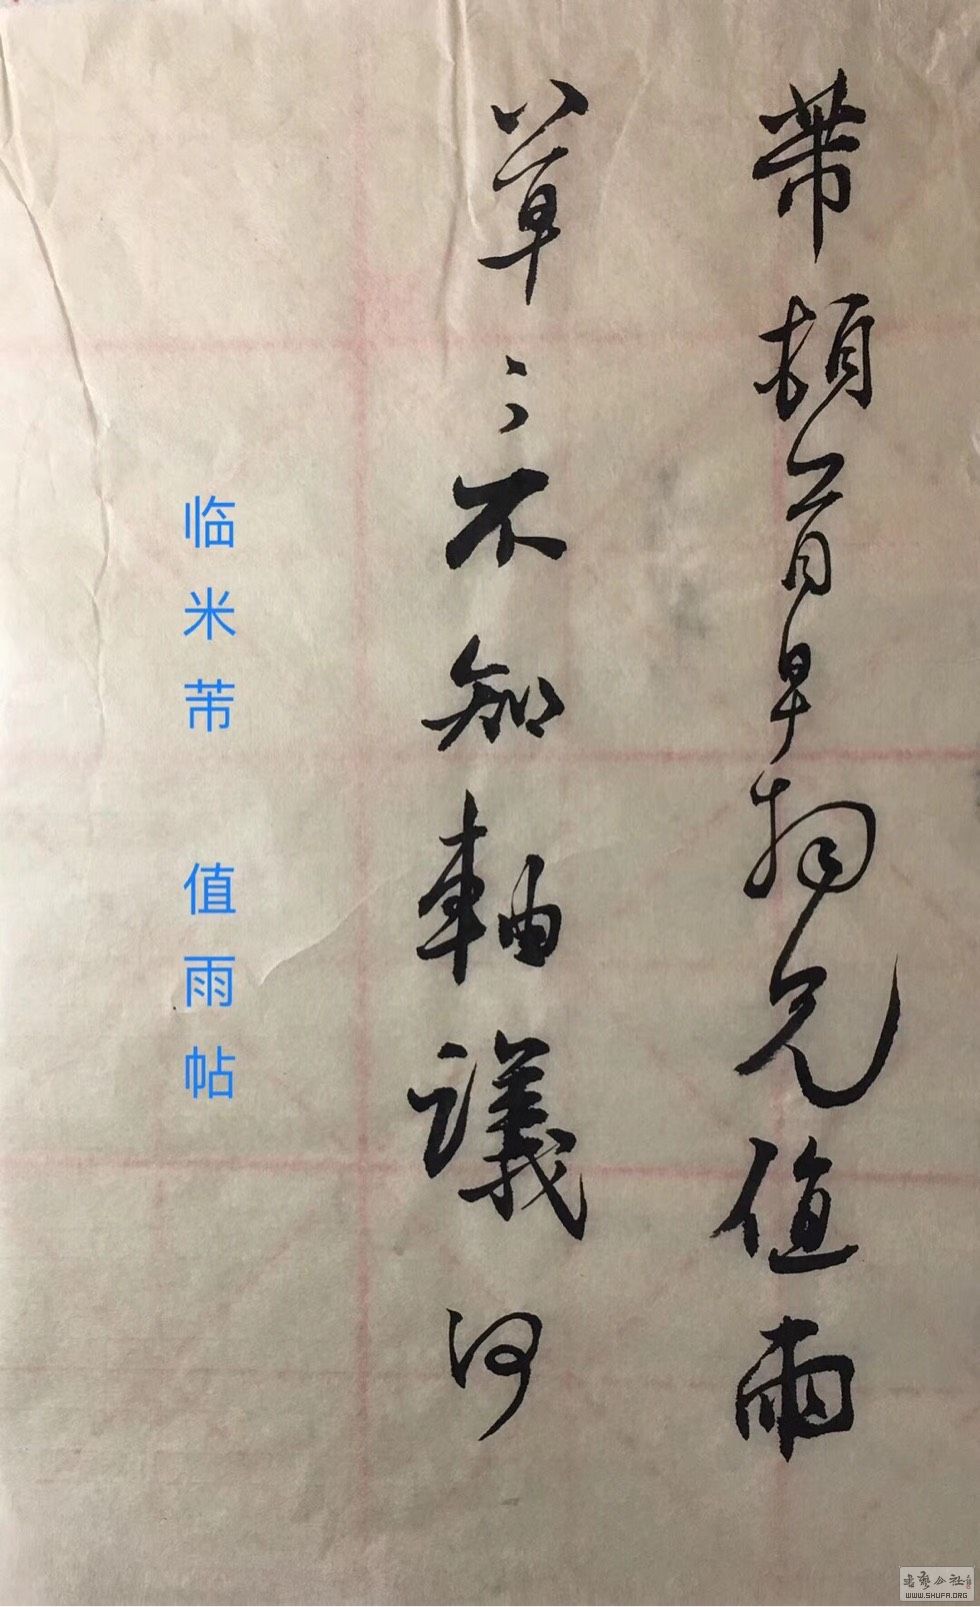 芾頓首早拘兄值雨
草々不知軸議何
临米芾 值雨帖
书艺公社
WWW.SHUFA.ORG